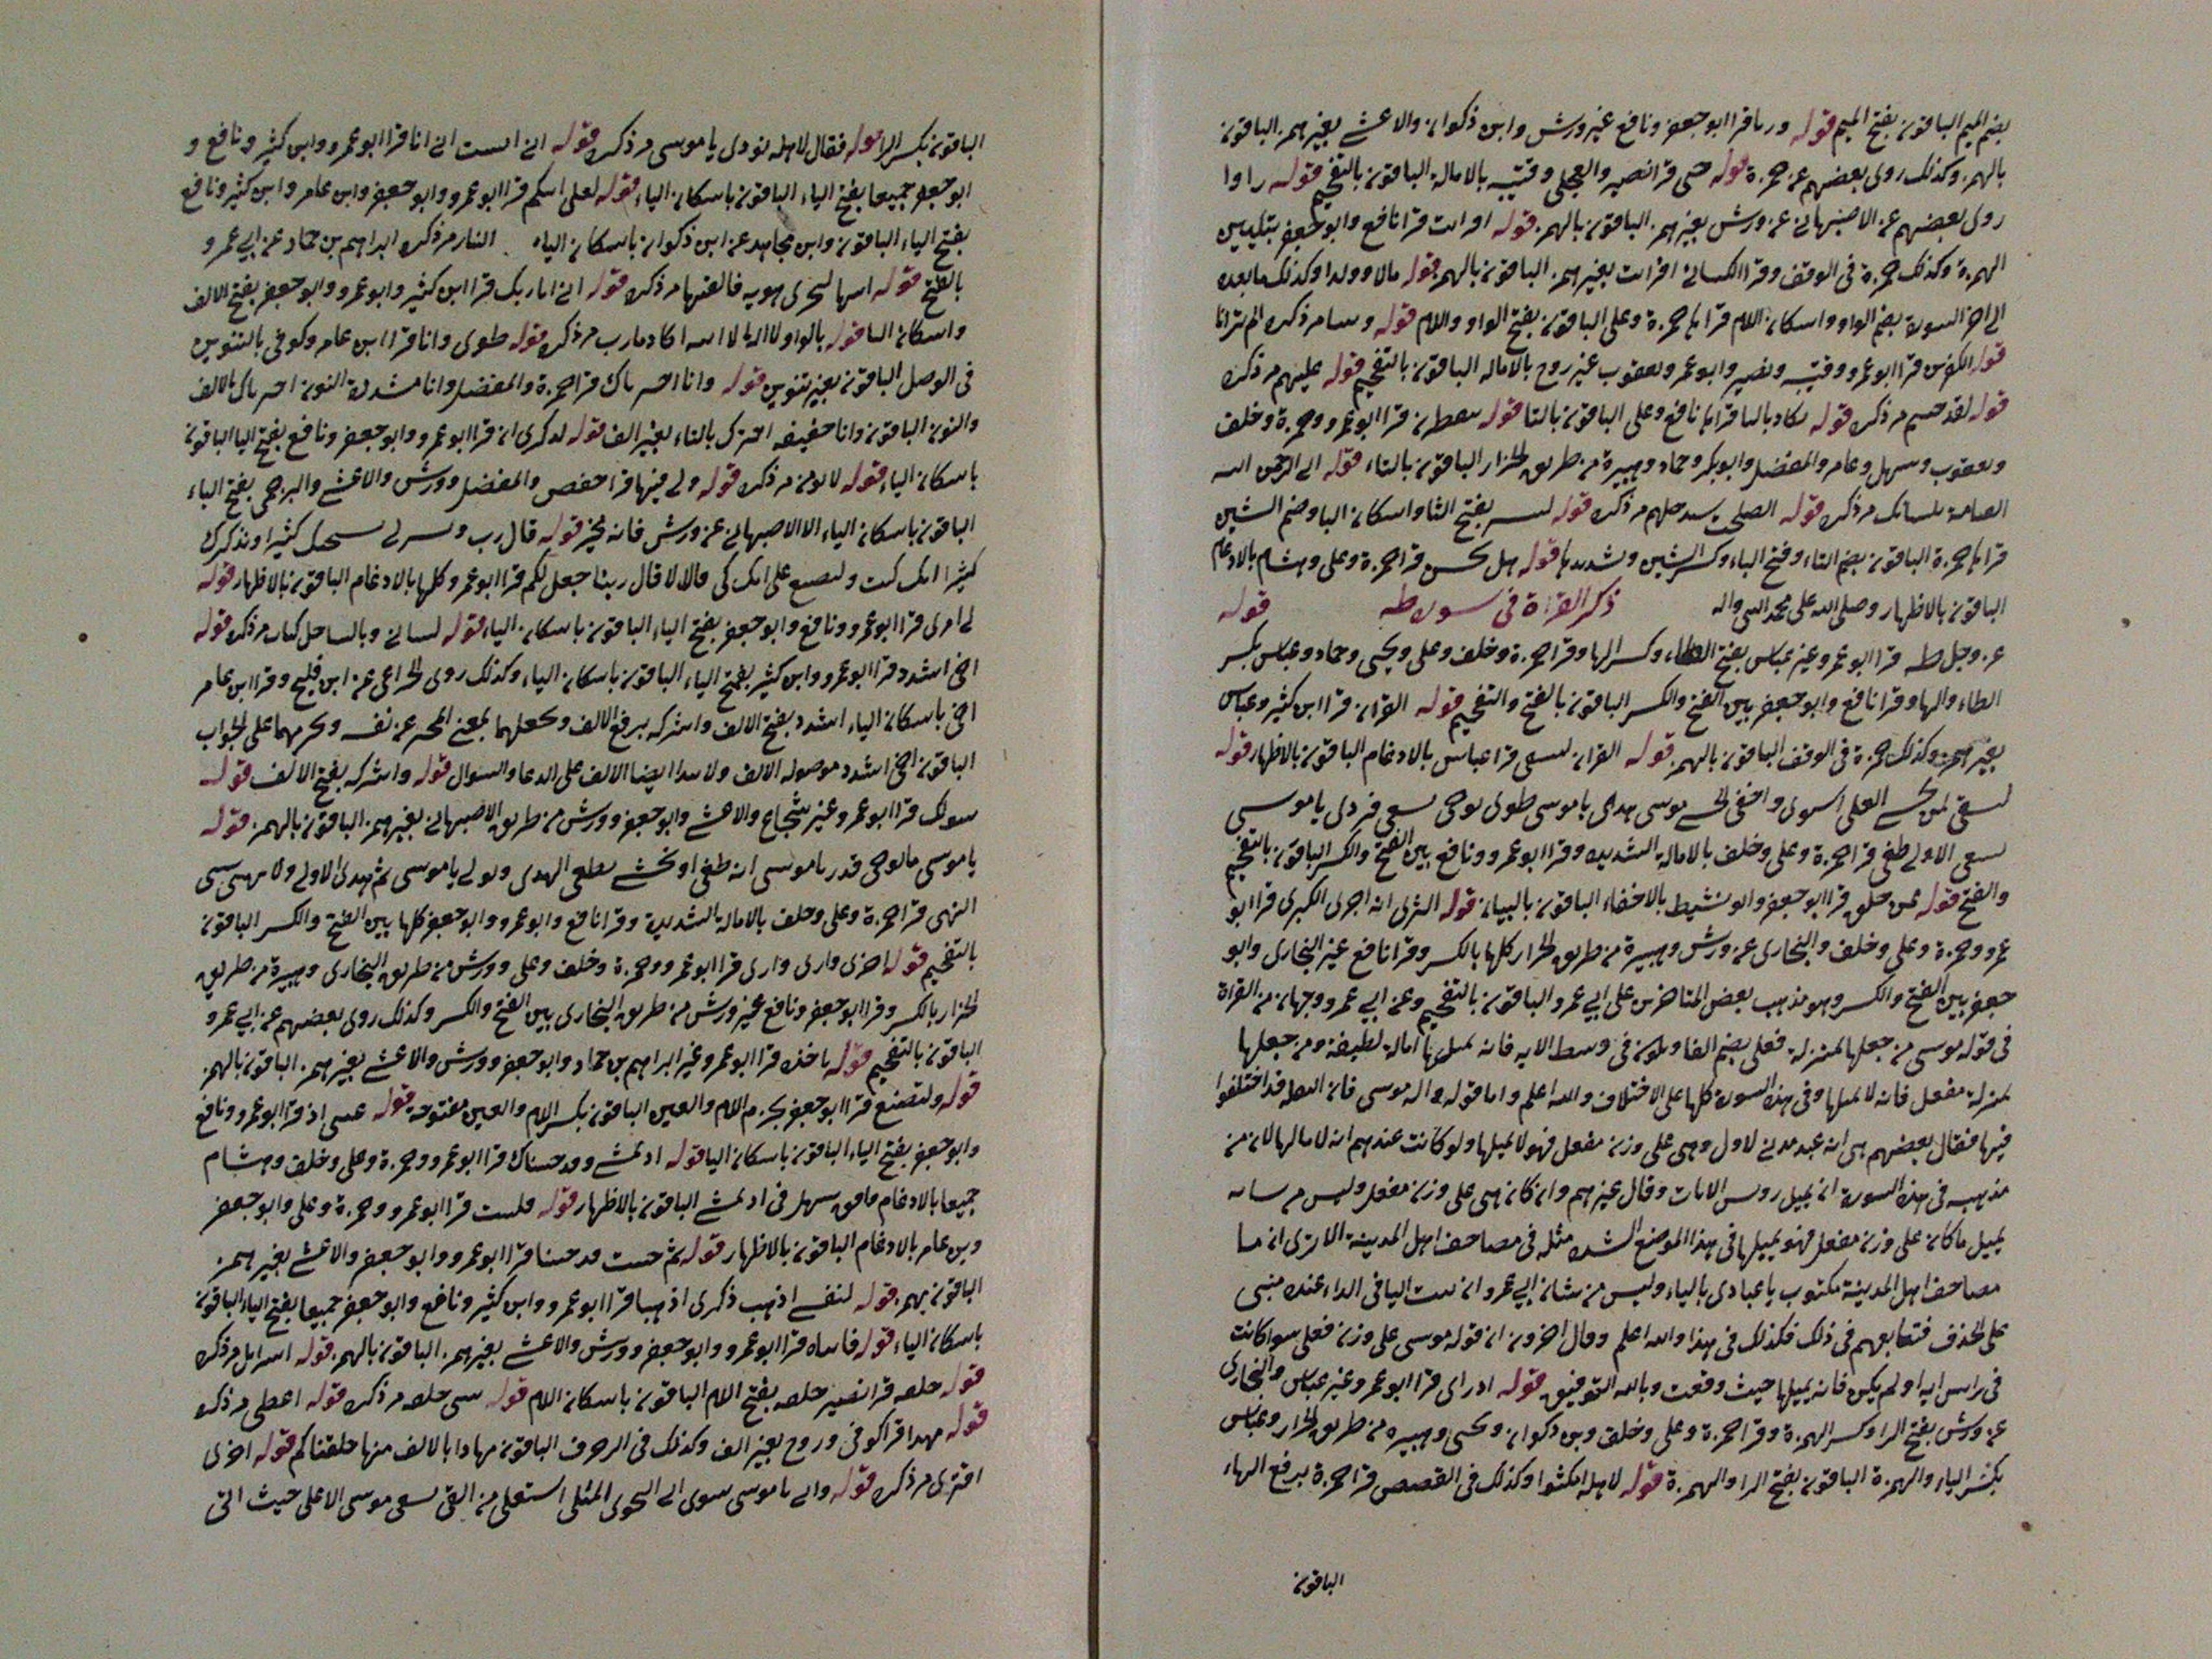 بضم الميم الباقون بفتح الميم قوله وريا قرا ابو جعفر ونافع غير ورش وابن ذكوان والاعشى بغير همز الباقون
بالهمز وكذلك روى بعضهم عن حمزة قوله حتى قرا نصير والعجلى وقتيبه بالامالة الباقون بالتفخيم قوله راوا
روى بعضهم عن الاصبهانى عن ورش بغير همز الباقون بالهمز قوله افرايت قرا نافع وابو جعفر بتليين
الهمزة وكذلك حمزة فى الوقف وقرا الكسائى افرايت بغير همز الباقون بالهمز قوله مالا وولدا وكذلك ما بعده
الى اخر السورة بضم الواو واسكان اللام قراها حمزة وعلى الباقون بفتح الواو واللام قوله وسا مر ذكره الم تر انا
قوله الكفرين قرا ابو عمرو وقتيبه ونصير وابو عمر ويعقوب غير روح بالاماله الباقون بالتفخيم قوله عليهم مر ذكره
قوله لقد جيتم مر ذكره قوله يكاد باليا قراها نافع وعلى الباقون بالتا قوله ينفطرن قرا ابو عمرو وحمزة وخلف
ويعقوب وسهل وعامر والمفضل وابو بكر وحماد وهبيرة من طريق الخزاز الباقون بالتاء قوله الى الرحمن
العيامة بلسانك مر ذكره قوله الصلحت مر ذكره قوله لتبشر بفتح التا واسكان البا وضم الشين
قراها حمزة الباقون بضم التاء وفتح الباء وكسر الشين وتشديدها قوله هل تحس قرا حمزة وعلى وهشام بالادغام
الباقون بالاظهار وصلى الله على محمد النبى واله ذكر القراة فى سورة طه قوله
عز وجل طه قرا ابو عمرو غير عباس بفتح الطاء وكسر الها وقرا حمزة وخلف وعلى ويحيى وحماد وعباس بكسر
الطاء والها وقرا نافع وابو جعفر بين الفتح والكسر الباقون بالفتح والتفخيم قوله القران قرا ابن كثير وعباس
بغير همز وكذلك حمزة فى الوقف الباقون بالهمز قوله القران لتشقى قرا عباس بالادغام الباقون بالاظهار قوله
لتشقى لمن يخشى العلى استوى واخفى الحسنى موسى هدى يا موسى طوى يوحى تسعى فتردى يا موسى
تسعى الاولى طغى قرا حمزة وعلى وخلف بالامالة الشديدة وقرا ابو عمرو ونافع بين الفتح والكسر الباقون بالتفخيم
والفتح قوله ممن خلق قرا ابو جعفر وابو نشيط بالاخفاء الباقون بالبيان قوله الثرى اخرى الكبرى قرا ابو
عمرو وحمزة وعلى وخلف والبخارى عن ورش وهبيرة من طريق الخزاز كلها بالكسر وقرا نافع غير البخارى وابو
جعفر بين الفتح والكسر وهو مذهب بعض المتاخرين على ابى عمرو الباقون بالتفخيم وعن ابى عمرو وجهان من القراة
فى قوله موسى من جعلها بمنزلة فعلى بضم الفا وتكون فى وسط الايه فانه يميلها امالة لطيفة ومن جعلها
بمنزلة مفعل فانه لا يميلها وفى هذه السورة كلها على الاختلاف والله اعلم واما قوله واله موسى فان النقله قد اختلفوا
فيها فقال بعضهم هى انه عند مدنى لاول وهى على وزن مفعل فهو لا يميلها ولو كانت عندهم انه لامالها لان من
مذهبه فى هذه السورة ان يميل روس الايات وقال غيرهم وان كان هى على وزن مفعل وليس من شانه
يميل ما كان على وزن مفعل فهو يميلها فى هذا الموضع لشده مثله فى مصاحف اهل المدينة الا ترى ان ما
مصاحف اهل المدينة مكتوب يا عبادى بالياء وليس من شان ابى عمرو ان يثبت اليا فى النداء عنده مبنى
على الحذف فتعابعهم فى ذلك فكذلك فى هذا والله اعلم وقال اخرون ان قوله موسى على وزن فعلى سوا كانت
فى راس ايه او لم يكن فانه يميلها حيث وقعت وبالله التوفيق قوله اذ راى قرا ابو عمرو غير عباس والبخارى
عن ورش بفتح الرا وكسر الهمزة وقرا حمزة وعلى وخلف وبن ذكوان ويحيى وهبيره من طريق الخزاز وعباس
بكسر الياء والهمزة الباقون بفتح الرا والهمزة قوله لاهله امكثوا وكذلك فى القصص قرا حمزة برفع الهاء
الباقون
الباقون بكسر الها قوله فقال لاهله نودى يا موسى مر ذكره قوله انى انست انى انا قرا ابو عمرو وابن كثير ونافع و
ابو جعفر جميعا بفتح الياء الباقون باسكان الياء قوله لعلى اتيكم قرا ابو عمرو وابو جعفر وابن عامر وابن كثير ونافع
بفتح الياء الباقون وابن مجاهد عن ابن ذكوان باسكان الياء النار مر ذكره ابراهيم بن حماد عن ابى عمرو
بالفتح قوله اتيها لتجزى هويه فالقيها مر ذكره قوله انى انا ربك قرا ابن كثير وابو عمرو وابو جعفر بفتح الالف
واسكان اليا قوله بالواو لا اله الا اكاد مارب مر ذكره قوله طوى وانا قرا ابن عامر وكوفى بالتنوين
فى الوصل الباقون بغير تنوين قوله وانا اخترناك قرا حمزة والمفضل وانا مشددة النون اخترناك بالالف
والنون الباقون وانا خفيفه اخترتك بالتاء بغير الف قوله لذكرى ان قرا ابو عمرو وابو جعفر ونافع بفتح اليا الباقون
باسكان الياء قوله لا يومن مر ذكره قوله ولى فيها قرا حفص والمفضل وورش والاعشى والبرجمى بفتح الياء
الباقون باسكان الياء الا الاصبهانى عن ورش فانه يخير قوله قال رب ويسر لى نسبحك كثيرا ونذكرك
كثيرا انك كنت ولتصنع على امك كى قالا لا قال ربنا جعل لكم قرا ابو عمرو كلها بالادغام الباقون بالاظهار قوله
لى امرى قرا ابو عمرو ونافع وابو جعفر بفتح الياء الباقون باسكان الياء قوله لسانى وبالساحل كيات مر ذكره قوله
اخى اشدد قرا ابو عمرو وابن كثير بفتح الياء الباقون باسكان الياء وكذلك روى الخزاعى عن ابن فليح وقرا ابن عامر
اخى باسكان الياء اشدد بفتح الالف واشركه برفع الالف ويجعلهما بمعنى المخبر عن نفسه ويجزمهما على الجواب
الباقون اخى اشدد موصوله الالف ولابتدا ايضا الالف على الدعا والسوال قوله واشركه بفتح الالف قوله
سولك قرا ابو عمرو غير شجاع والاعشى وابو جعفر وورش من طريق الاصبهانى بغير همز الباقون بالهمز قوله
يا موسى ما يوحى قدر يا موسى انه طغى او يخشى يطغى الهدى وتولى يا موسى ثم هدى الاولى ولا ينسى شتى
النهى قرا حمزة وعلى وخلف بالامالة الشديدة وقرا نافع وابو عمرو وابو جعفر كلها بين الفتح والكسر الباقون
بالتفخيم قوله اخرى وارى وارى قرا ابو عمرو وحمزة وخلف وعلى وورش من طريق البخارى وهبيرة من طريق
الخزاز بالكسر وقرا ابو جعفر ونافع غير ورش من طريق البخارى بين الفتح والكسر وكذلك روى بعضهم عن ابى عمرو
الباقون بالتفخيم قوله ياخذه قرا ابو عمرو غير ابراهيم بن حماد وابو جعفر وورش والاعشى بغير همز الباقون بالهمز
قوله ولتصنع قرا ابو جعفر بجزم اللام والعين الباقون بكسر اللام والعين مفتوحة قوله عينى اذ قرا ابو عمرو ونافع
وابو جعفر بفتح الياء الباقون باسكان اليا قوله اذ تمشى وقد جيناك قرا ابو عمرو وحمزة وعلى وخلف وهشام
جميعا بالادغام وافق سهل فى اذ تمشى الباقون بالاظهار قوله فلبثت قرا ابو عمرو وحمزة وعلى وابو جعفر
وبن عامر بالادغام الباقون بالاظهار قوله ثم جيت قد جينا قرا ابو عمرو وابو جعفر والاعشى بغير همز
الباقون بهمز قوله لنفسى اذهب ذكرى اذهبا قرا ابو عمرو وابن كثير ونافع وابو جعفر جميعا بفتح الياء الباقون
باسكان الياء قوله فاتياه قرا ابو عمرو وابو جعفر وورش والاعشى بغير همز الباقون بالهمز قوله اسرايل مر ذكره
قوله خلقه قرا نصير خلقه بفتح اللام الباقون باسكان اللام قوله شى خلقه مر ذكره قوله اعطى مر ذكره
قوله مهدا قرا كوفى وروح بغير الف وكذلك فى الزخرف الباقون مهادا بالالف منها خلقناكم قوله اخرى
افترى مر ذكره قوله واتى يا موسى سوى اتى النجوى المثلى استعلى من القى تسعى موسى الاعلى حيث اتى